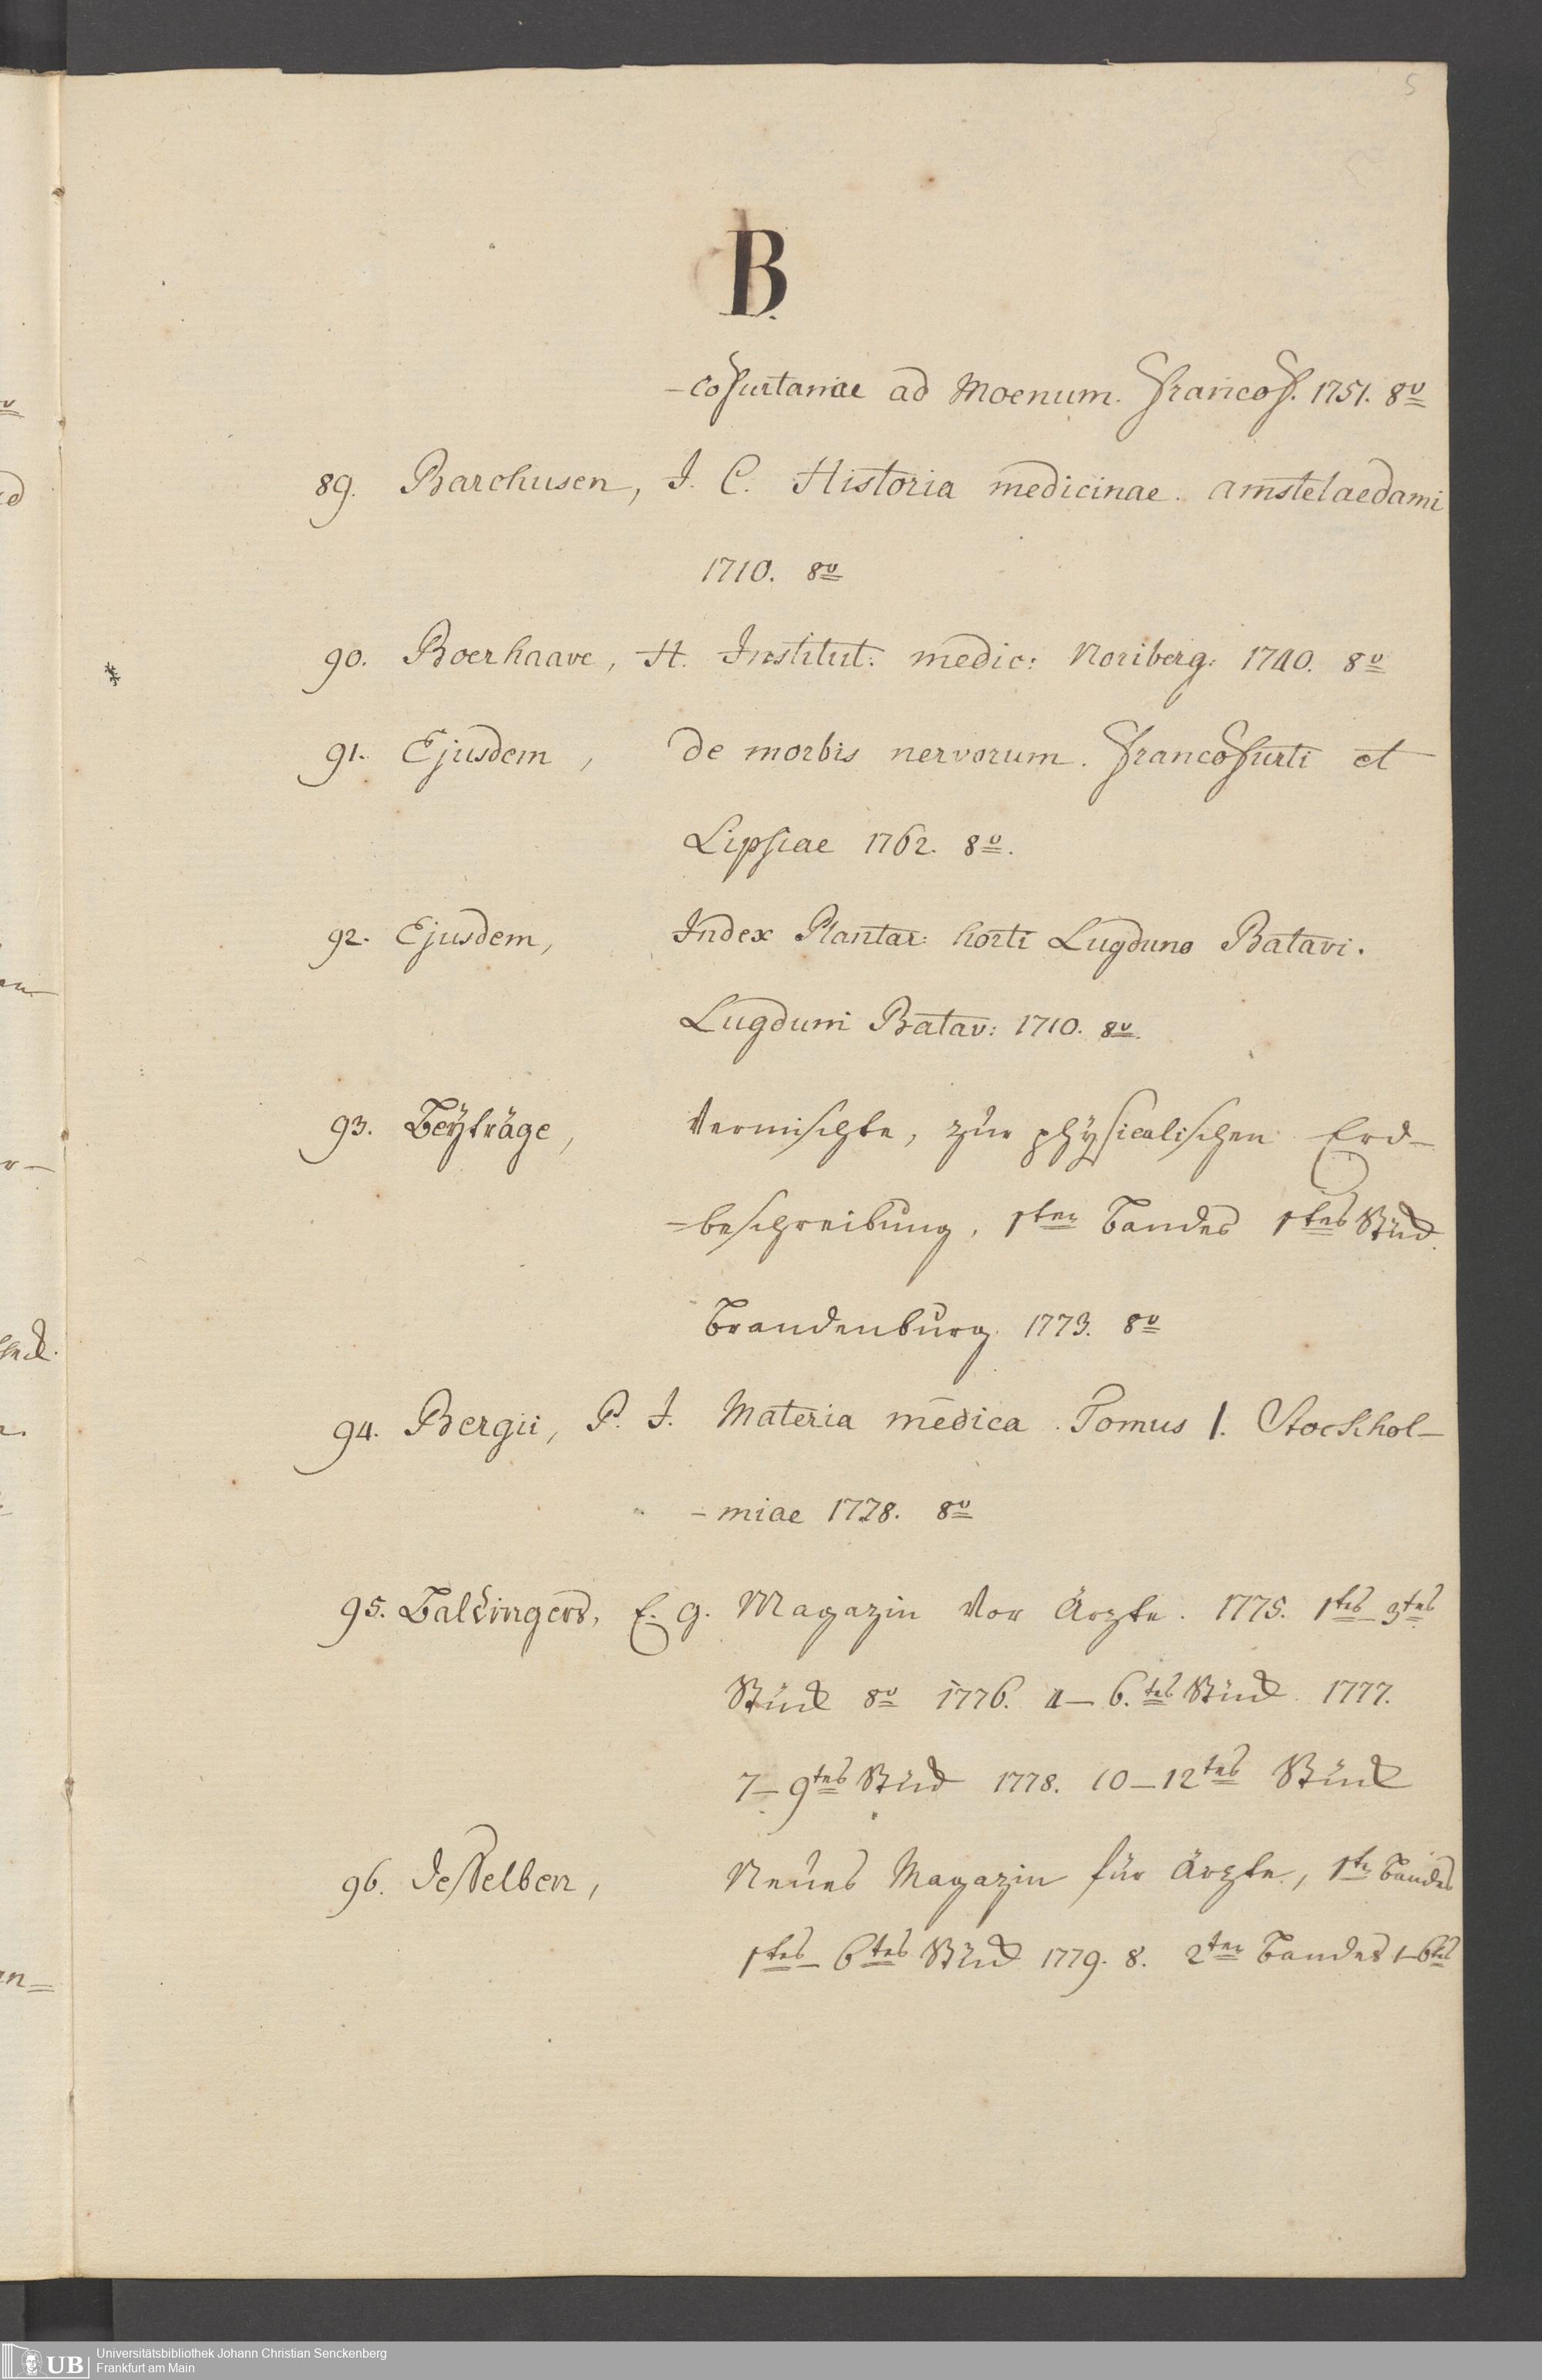 5
B.
-cofurtanae ad Moenum. Francof. 1751. 8º
89. Barchusen, J. C. Historia medicinae. Amstelaedami
1710. 8º
90. Boerhaave, H. Institut: medic: Noriberg: 1740. 8º
91. Ejusdem, de morbis nervorum. Francofurti et
Lipsiae 1762. 8º.
92. Ejusdem, Index Plantar: horti Lugduno Batavi.
Lugduni Batav: 1710. 8º
93. Beÿträge, Vermischte, zur phÿsicalischen Erd-
-beschreibung, 1ten Bandes 1tes Stück.
Brandenburg 1773. 8º
94. Bergii, P. J. Materia medica. Tomus 1. Stockhol-
-miae 1778. 8º
95. Baldingers, E. G. Magazin vor Ärzte. 1775. 1tes-3tes
Stück 8º 1776. 4-6.tes Stück 1777.
7-9tes Stück 1778. 10-12tes Stück
96. Desselben, Neues Magazin für Ärzte, 1ten Bandes
1tes-6tes Stück 1779. 8. 2ten Bandes 1-6tes
UB Universitätsbibliothek Johann Christian Senckenberg
Frankfurt am Main